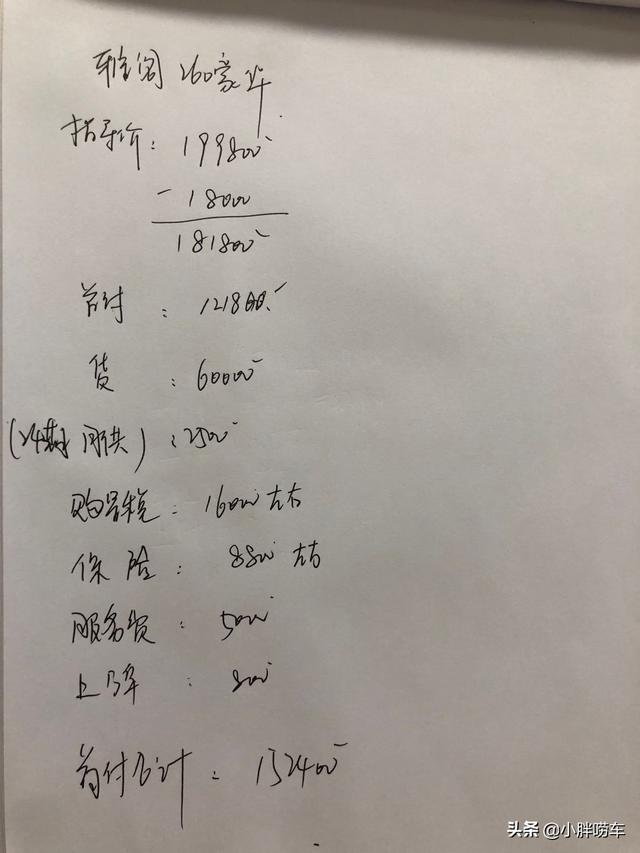 雅阁 260豪华
指导价: 199800
- 18000
181800
首付 : 121800.
贷 : 60000
(24期 月供) : 2500
购置税 : 16000 左右
保险 : 8800 左右
服务费 : 5000
上牌 : 800
首付合计 : 152400
头条 @小胖唠车